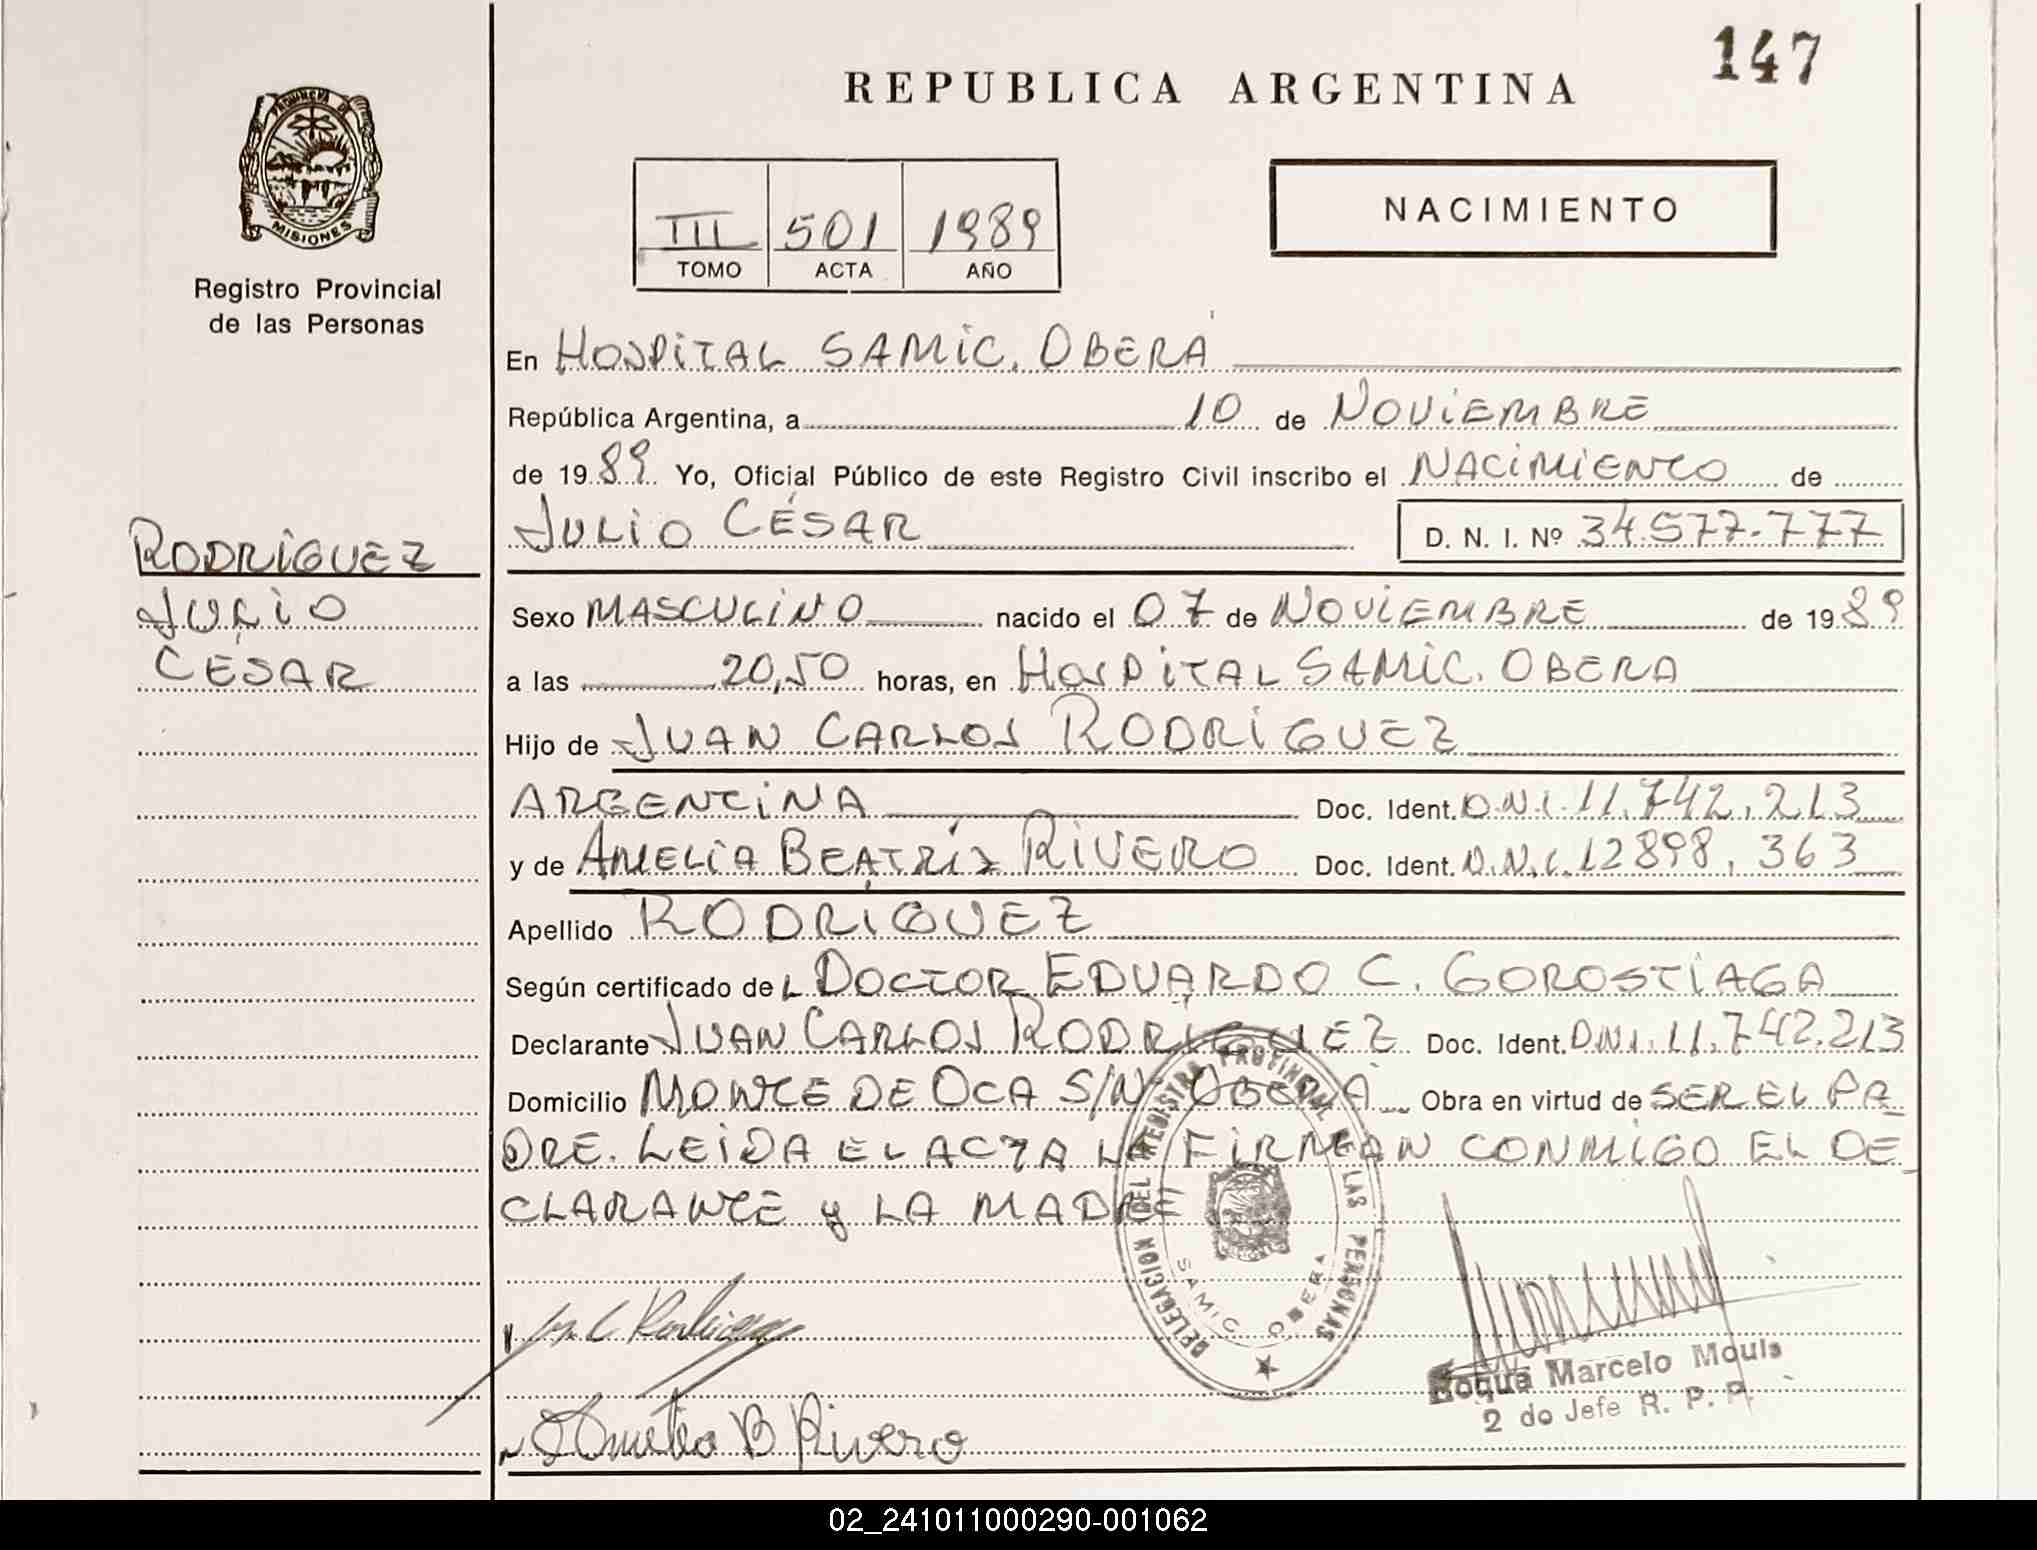 147
REPUBLICA ARGENTINA
PROVINCIA DE
MISIONES
Registro Provincial
de las Personas
III 501 1989
TOMO ACTA AÑO
NACIMIENTO
En HOSPITAL SAMIC. OBERÁ
República Argentina, a 10 de NOVIEMBRE
de 1989 Yo, Oficial Público de este Registro Civil inscribo el NACIMIENTO de
JULIO CÉSAR D. N. I. Nº 34.577.777
RODRÍGUEZ
JULIO
CÉSAR
Sexo MASCULINO nacido el 07 de NOVIEMBRE de 1989
a las 20,50 horas, en HOSPITAL SAMIC. OBERA
Hijo de JUAN CARLOS RODRÍGUEZ
ARGENTINA Doc. Ident. D.N.I. 11.742.213
y de AMELIA BEATRÍZ RIVERO Doc. Ident. D.N.I. 12898.363
Apellido RODRIGUEZ
Según certificado deL DOCTOR EDUARDO C. GOROSTIAGA
Declarante JUAN CARLOS RODRÍGUEZ Doc. Ident. DNI. 11.742.213
Domicilio MONTE DE OCA S/Nº OBERÁ Obra en virtud de SER EL PA
DRE. LEIDA EL ACTA LA FIRMAN CONMIGO EL DE
CLARANTE y LA MADRE
DELEGACION DEL REGISTRO PROVINCIAL DE LAS PERSONAS
SAMIC OBERA
Roque Marcelo Mouls
2 do Jefe R. P. P.
Amelia B Rivero
02_241011000290-001062